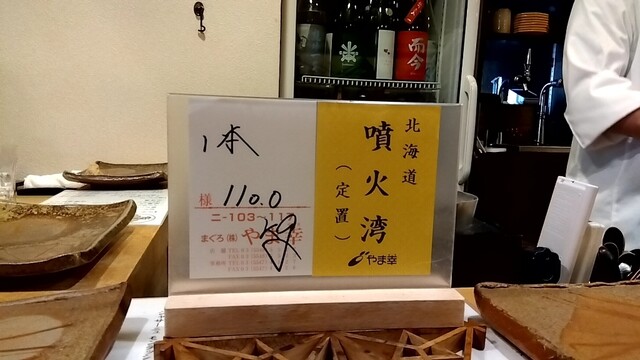 北海道
噴火湾
(定置)
やま幸
1本
様 110.0
ニ-103-117
まぐろ(株)やま幸
而今